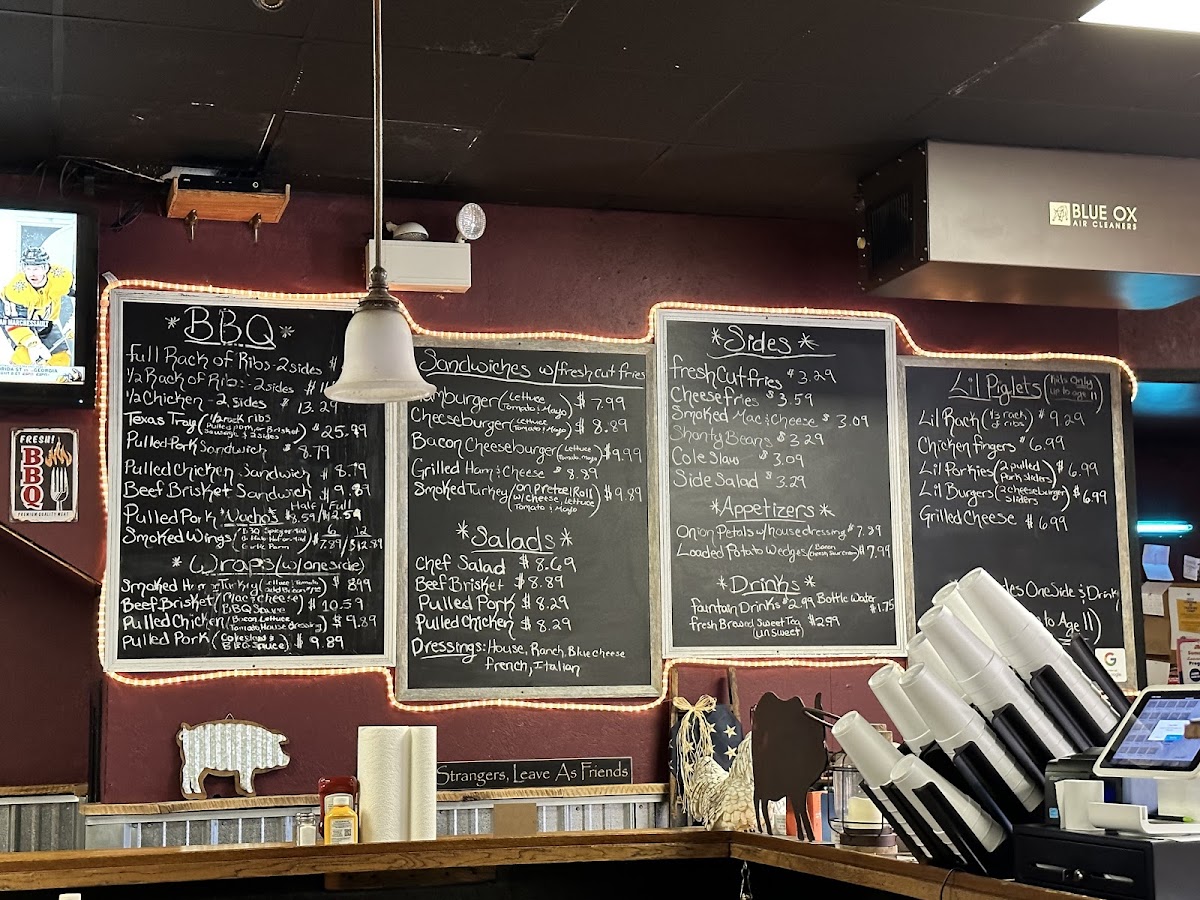 *BBQ*
Full Rack of Ribs - 2 sides $
1/2 Rack of Ribs - 2 sides $
1/2 Chicken - 2 sides $ 13.29
Texas Tray (1/2 rack ribs Pulled pork or Brisket Sausage & 2 sides) $25.99
Pulled Pork Sandwich $8.79
Pulled Chicken Sandwich $8.79
Beef Brisket Sandwich $9.89
Half / Full
Pulled Pork "Nachos" $8.59/$12.59
6 12
Smoked Wings $7.89/$12.89
*Wraps (w/one side)
Smoked Ham & Turkey $ 8.99
Beef Brisket (Mac & cheese BBQ Sauce) $10.59
Pulled Chicken (Bacon Lettuce Tomato, House dressing) $9.89
Pulled Pork (Coleslaw & BBQ Sauce) $ 9.89
Sandwiches w/fresh cut fries
Hamburger (Lettuce Tomato & Mayo) $ 7.99
Cheeseburger (Lettuce Tomato & Mayo) $ 8.89
Bacon Cheeseburger (Lettuce Tomato, Mayo) $9.99
Grilled Ham & Cheese $ 8.89
Smoked Turkey (on pretzel Roll w/cheese, Lettuce Tomato & Mayo) $9.89
*Salads*
Chef Salad $8.69
Beef Brisket $8.89
Pulled Pork $8.29
Pulled Chicken $8.29
Dressings: House, Ranch, Blue cheese
French, Italian
*Sides*
Fresh Cut Fries $3.29
Cheese Fries $3.59
Smoked Mac & Cheese $3.09
Shanty Beans $3.29
Cole Slaw $3.09
Side Salad $3.29
*Appetizers*
Onion Petals w/house dressing $7.39
Loaded Potato Wedges (Bacon Cheese, Sour Cream) $7.99
*Drinks*
Fountain Drinks $2.99 Bottle Water $1.75
Fresh Brewed Sweet Tea $2.99
(unsweet)
Lil Piglets (Kids Only up to age 11)
Lil Rack (1/3 rack of ribs) $9.29
Chicken fingers $6.99
Lil Porkies (2 pulled Pork Sliders) $6.99
Lil Burgers (2 cheeseburger Sliders) $6.99
Grilled Cheese $6.99
One Side & Drink
to Age 11)
BLUE OX
AIR CLEANERS
FRESH!
BBQ
PREMIUM QUALITY MEAT
Strangers, Leave As Friends
G